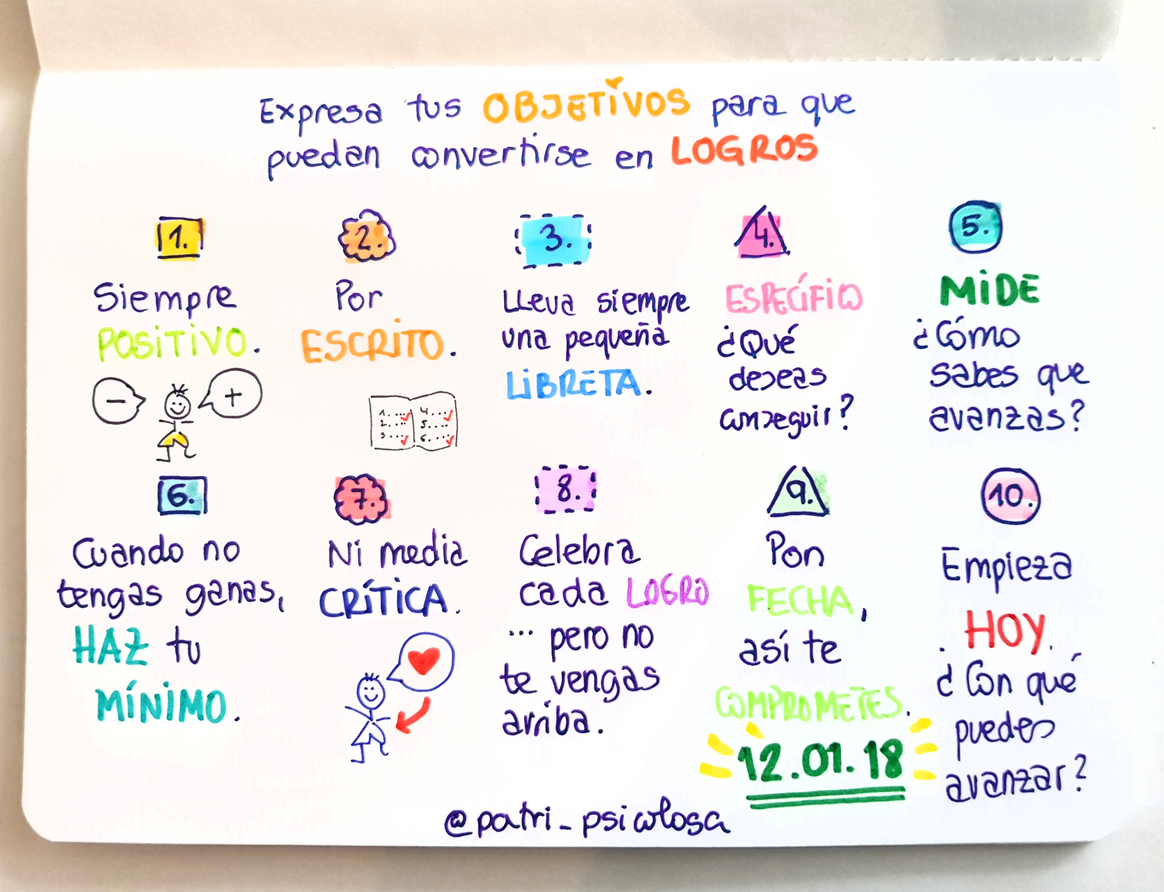 Expresa tus OBJETIVOS para que
puedan convertirse en LOGROS
1.
Siempre
POSITIVO.
-
+
2.
Por
ESCRITO.
1.....
2.....
3.....
4.....
5.....
6.....
3.
Lleva siempre
una pequeña
LIBRETA.
4.
ESPECÍFICO
¿Qué
deseas
conseguir?
5.
MIDE
¿Cómo
sabes que
avanzas?
6.
Cuando no
tengas ganas,
HAZ tu
MÍNIMO.
7.
Ni media
CRÍTICA.
8.
Celebra
cada LOGRO
... pero no
te vengas
arriba.
9.
Pon
FECHA,
así te
COMPROMETES.
12.01.18
10.
Empieza
HOY.
¿Con qué
puedes
avanzar?
@patri_psicolosa